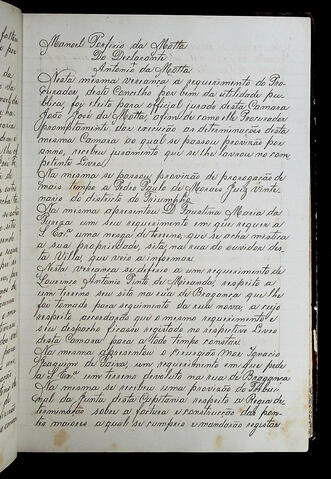 Manoel Porfirio da Motta
Do Declarante
Antonio da Motta.
Nesta mesma vereança a requerimento do Pro-
curador, deste Concelho por bem da utilidade pu-
blica, foi eleito para official jurado desta Camara
João José da Motta, afim de com elle Procurador
promptamente dar execução as determinações desta
mesma Camara ao qual se passou provizão por
anno, recebeu juramento que se lhe lavrou no com-
petente Livro.
Na mesma se passou provizão de prorogação de
mais tempo a Pedro Paulo de Moraes Juiz Vinte-
nario do districto do Triumpho.
Na mesma apresentou D. Faustina Maria da
em seu requerimento em que requer a
uma nesga de terreno, que se acha mistica
a sua propriedade, sita na rua do ouvidor des-
ta Villa, que veio a informar.
Nesta vereança se deferio a um requerimento de
Lourenco Antonio Pinto de Miranda, respeito a
um terreno seu sito na rua de Bragança que lhe
foi tomado para seguimento da rua nova, a cujo
respeito accordação que o mesmo requerimento e
seu despacho ficasse registado no respectivo Livro
desta Camara para a todo tempo constar.
Na mesma apresentou o Cirurgião Mor Ignacio
Joaquim de Paiva, um requerimento em que pede
a um terreno devoluto na rua de Bragança
Na mesma se recebeu uma provizão do Tribu-
nal da Junta desta Capitania respeito a Regia de-
terminação sobre a factura e construcção das pon-
tes maiores a qual se cumprio e mandarão registar